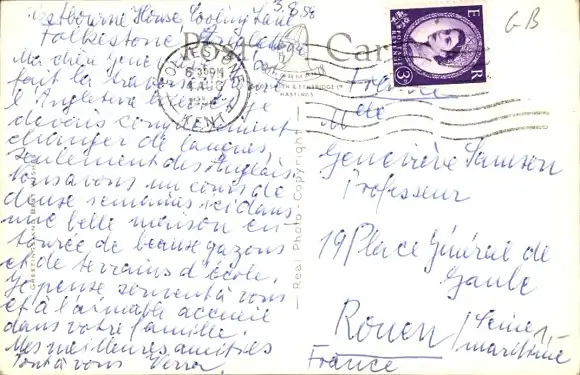 3.8.58
Westbourne House Cooling Lane
Folkestone Angleterre
Ma chère Gene
fait la travers
l'Angleterre
devons complètement
changer de langues
seulement des Anglais.
nous avons un cours de
deux semaines ici dans
une belle maison en-
tourée de beaux gazons
et de terrains d'école.
Je pense souvent à vous
et à l'aimable accueil
dans votre famille.
Mes meilleures amitiés
Tout à vous Verra.
Post Card
GB
FOLKESTONE
4 AUG
KENT
E R
POSTAGE REVENUE
3D
NORMAN
HASTINGS
GREETINGS AND BEST WISHES
Real Photo - Copyright
France
Mlle
Geneviève Samson
Professeur
19 Place Général de
Gaule
Rouen / Seine
maritime
France